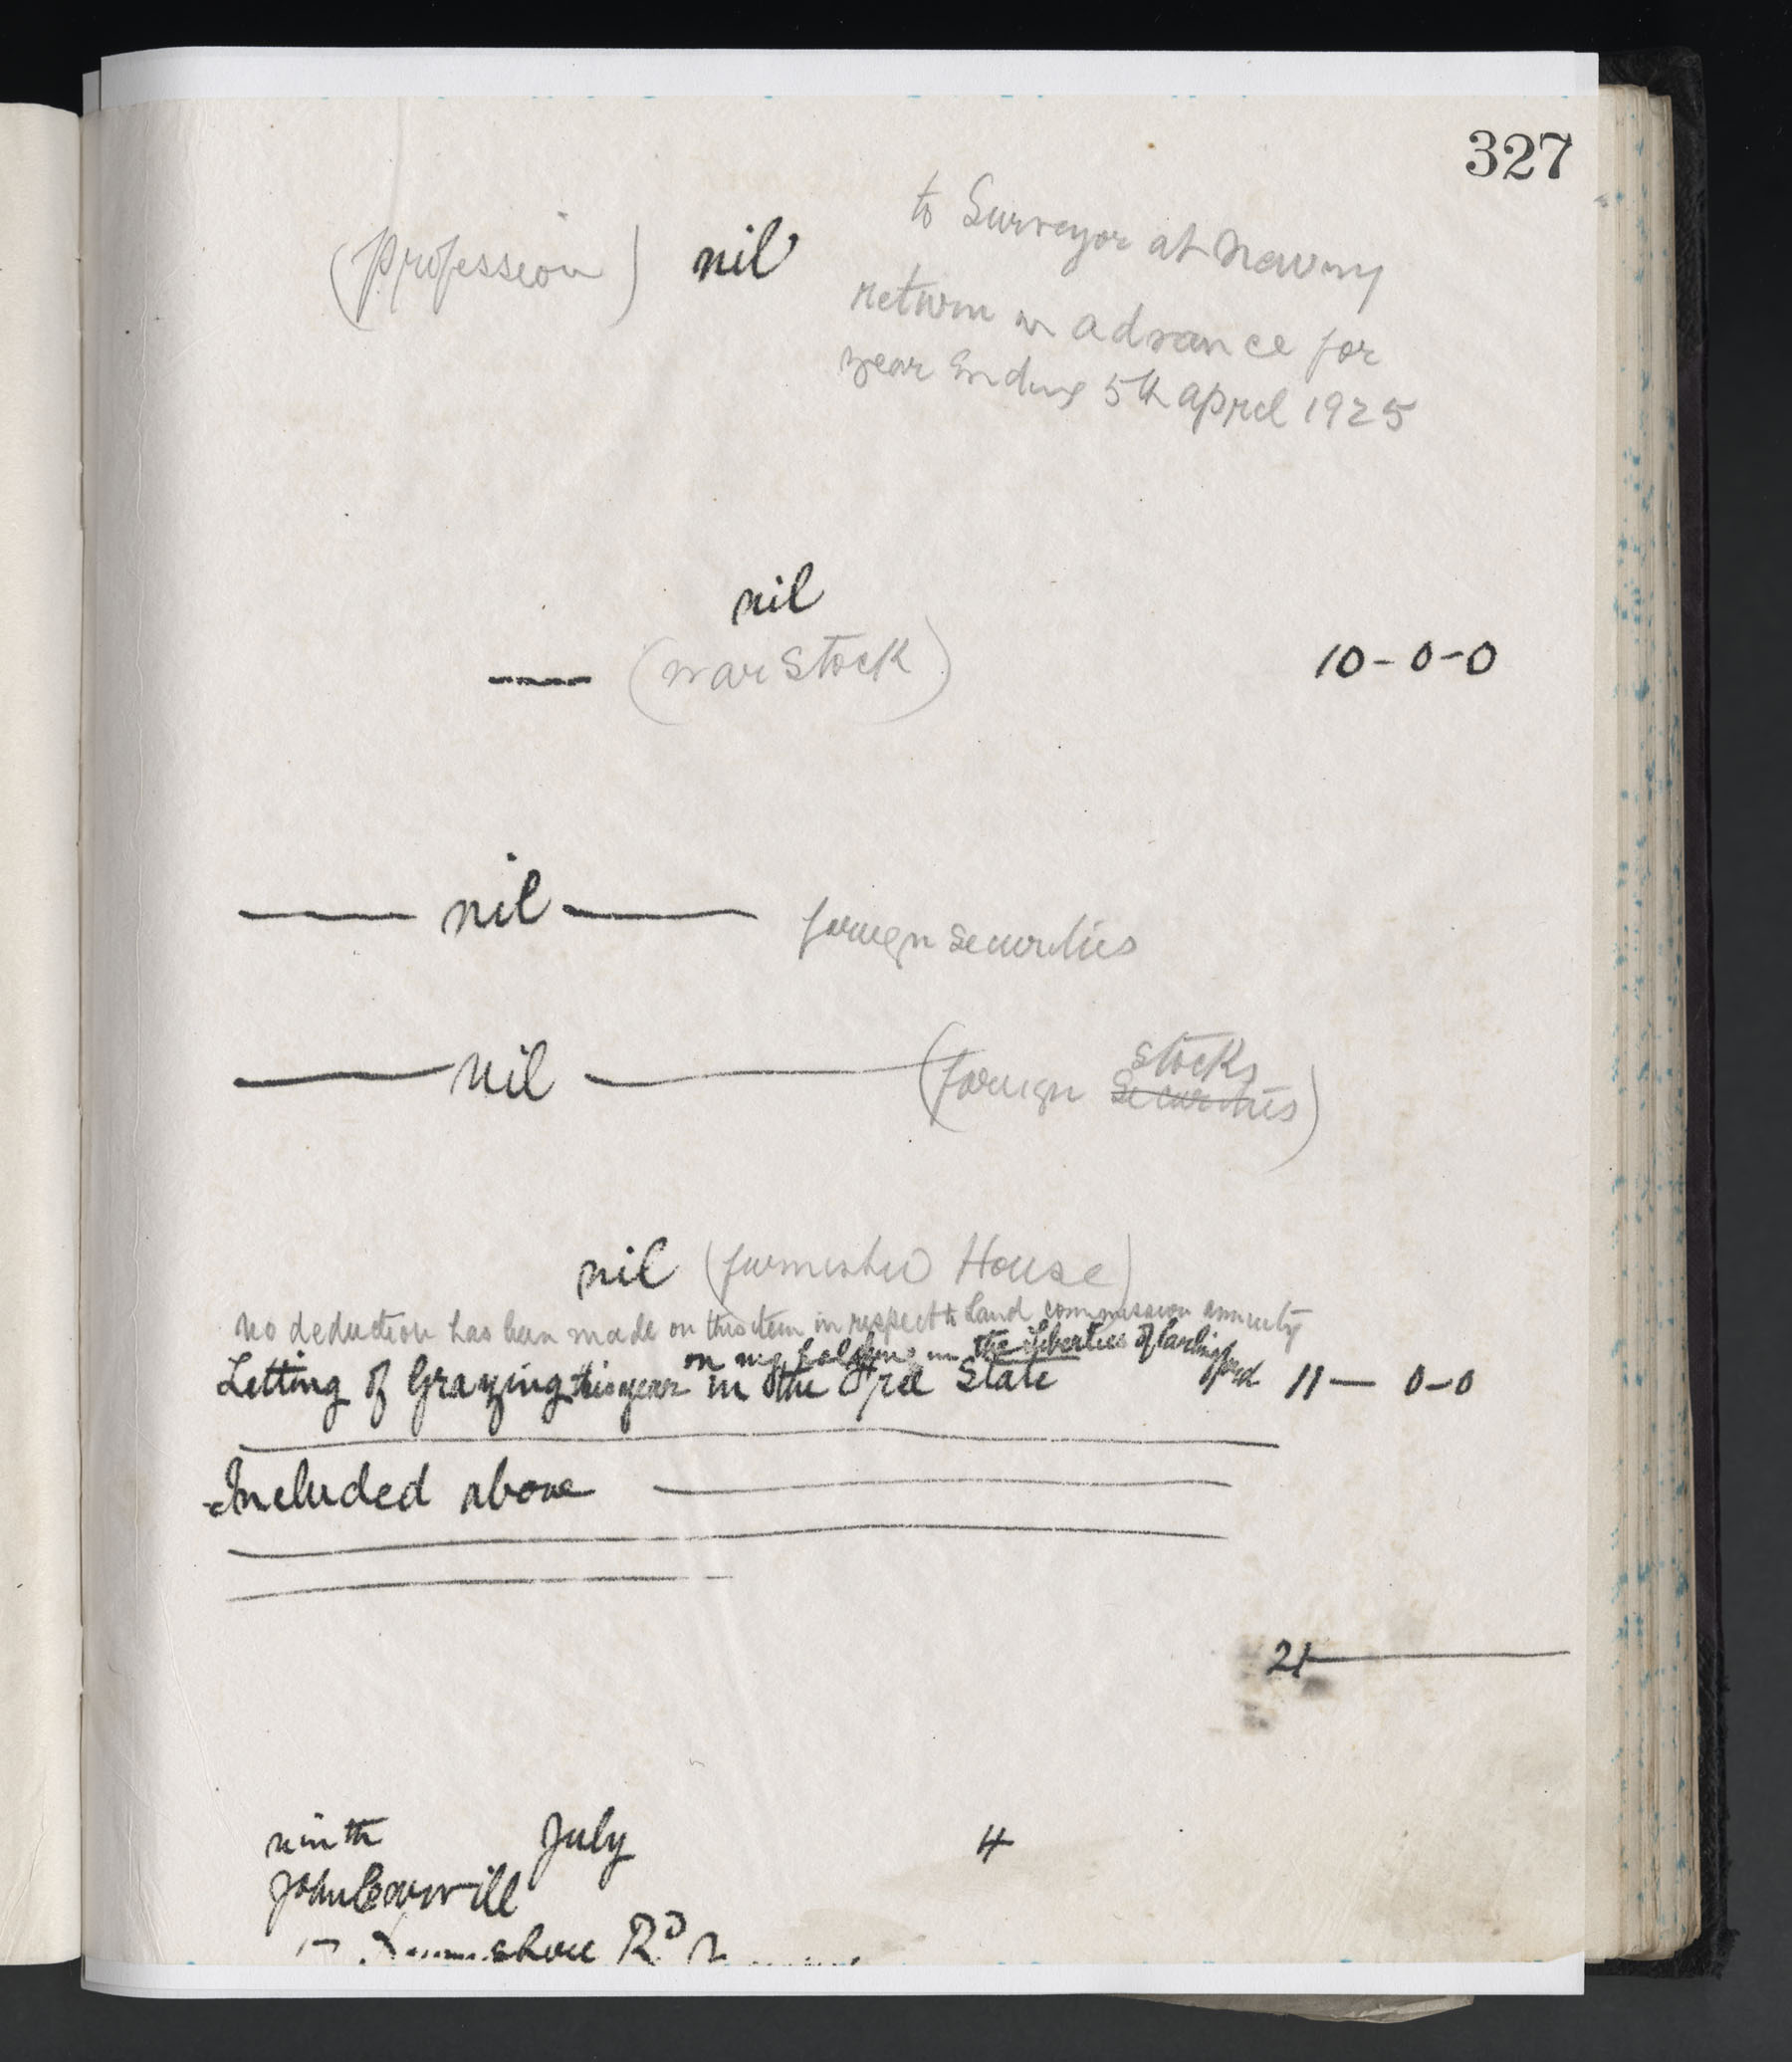 327
to Surveyor at Newry
(Profession) nil
return in advance for
year Ending 5th april 1925
nil
(war Stock) 10-0-0
nil foreign securities
nil (foreign Securities)
stocks
nil (furnished House)
no deduction has been made on this item in respect to Land commission annuity
on my holding in the liberties of Carlingford
Letting of Grazing this year in the Free State 11— 0-0
Included above
21
ninth July 4
John
Rd